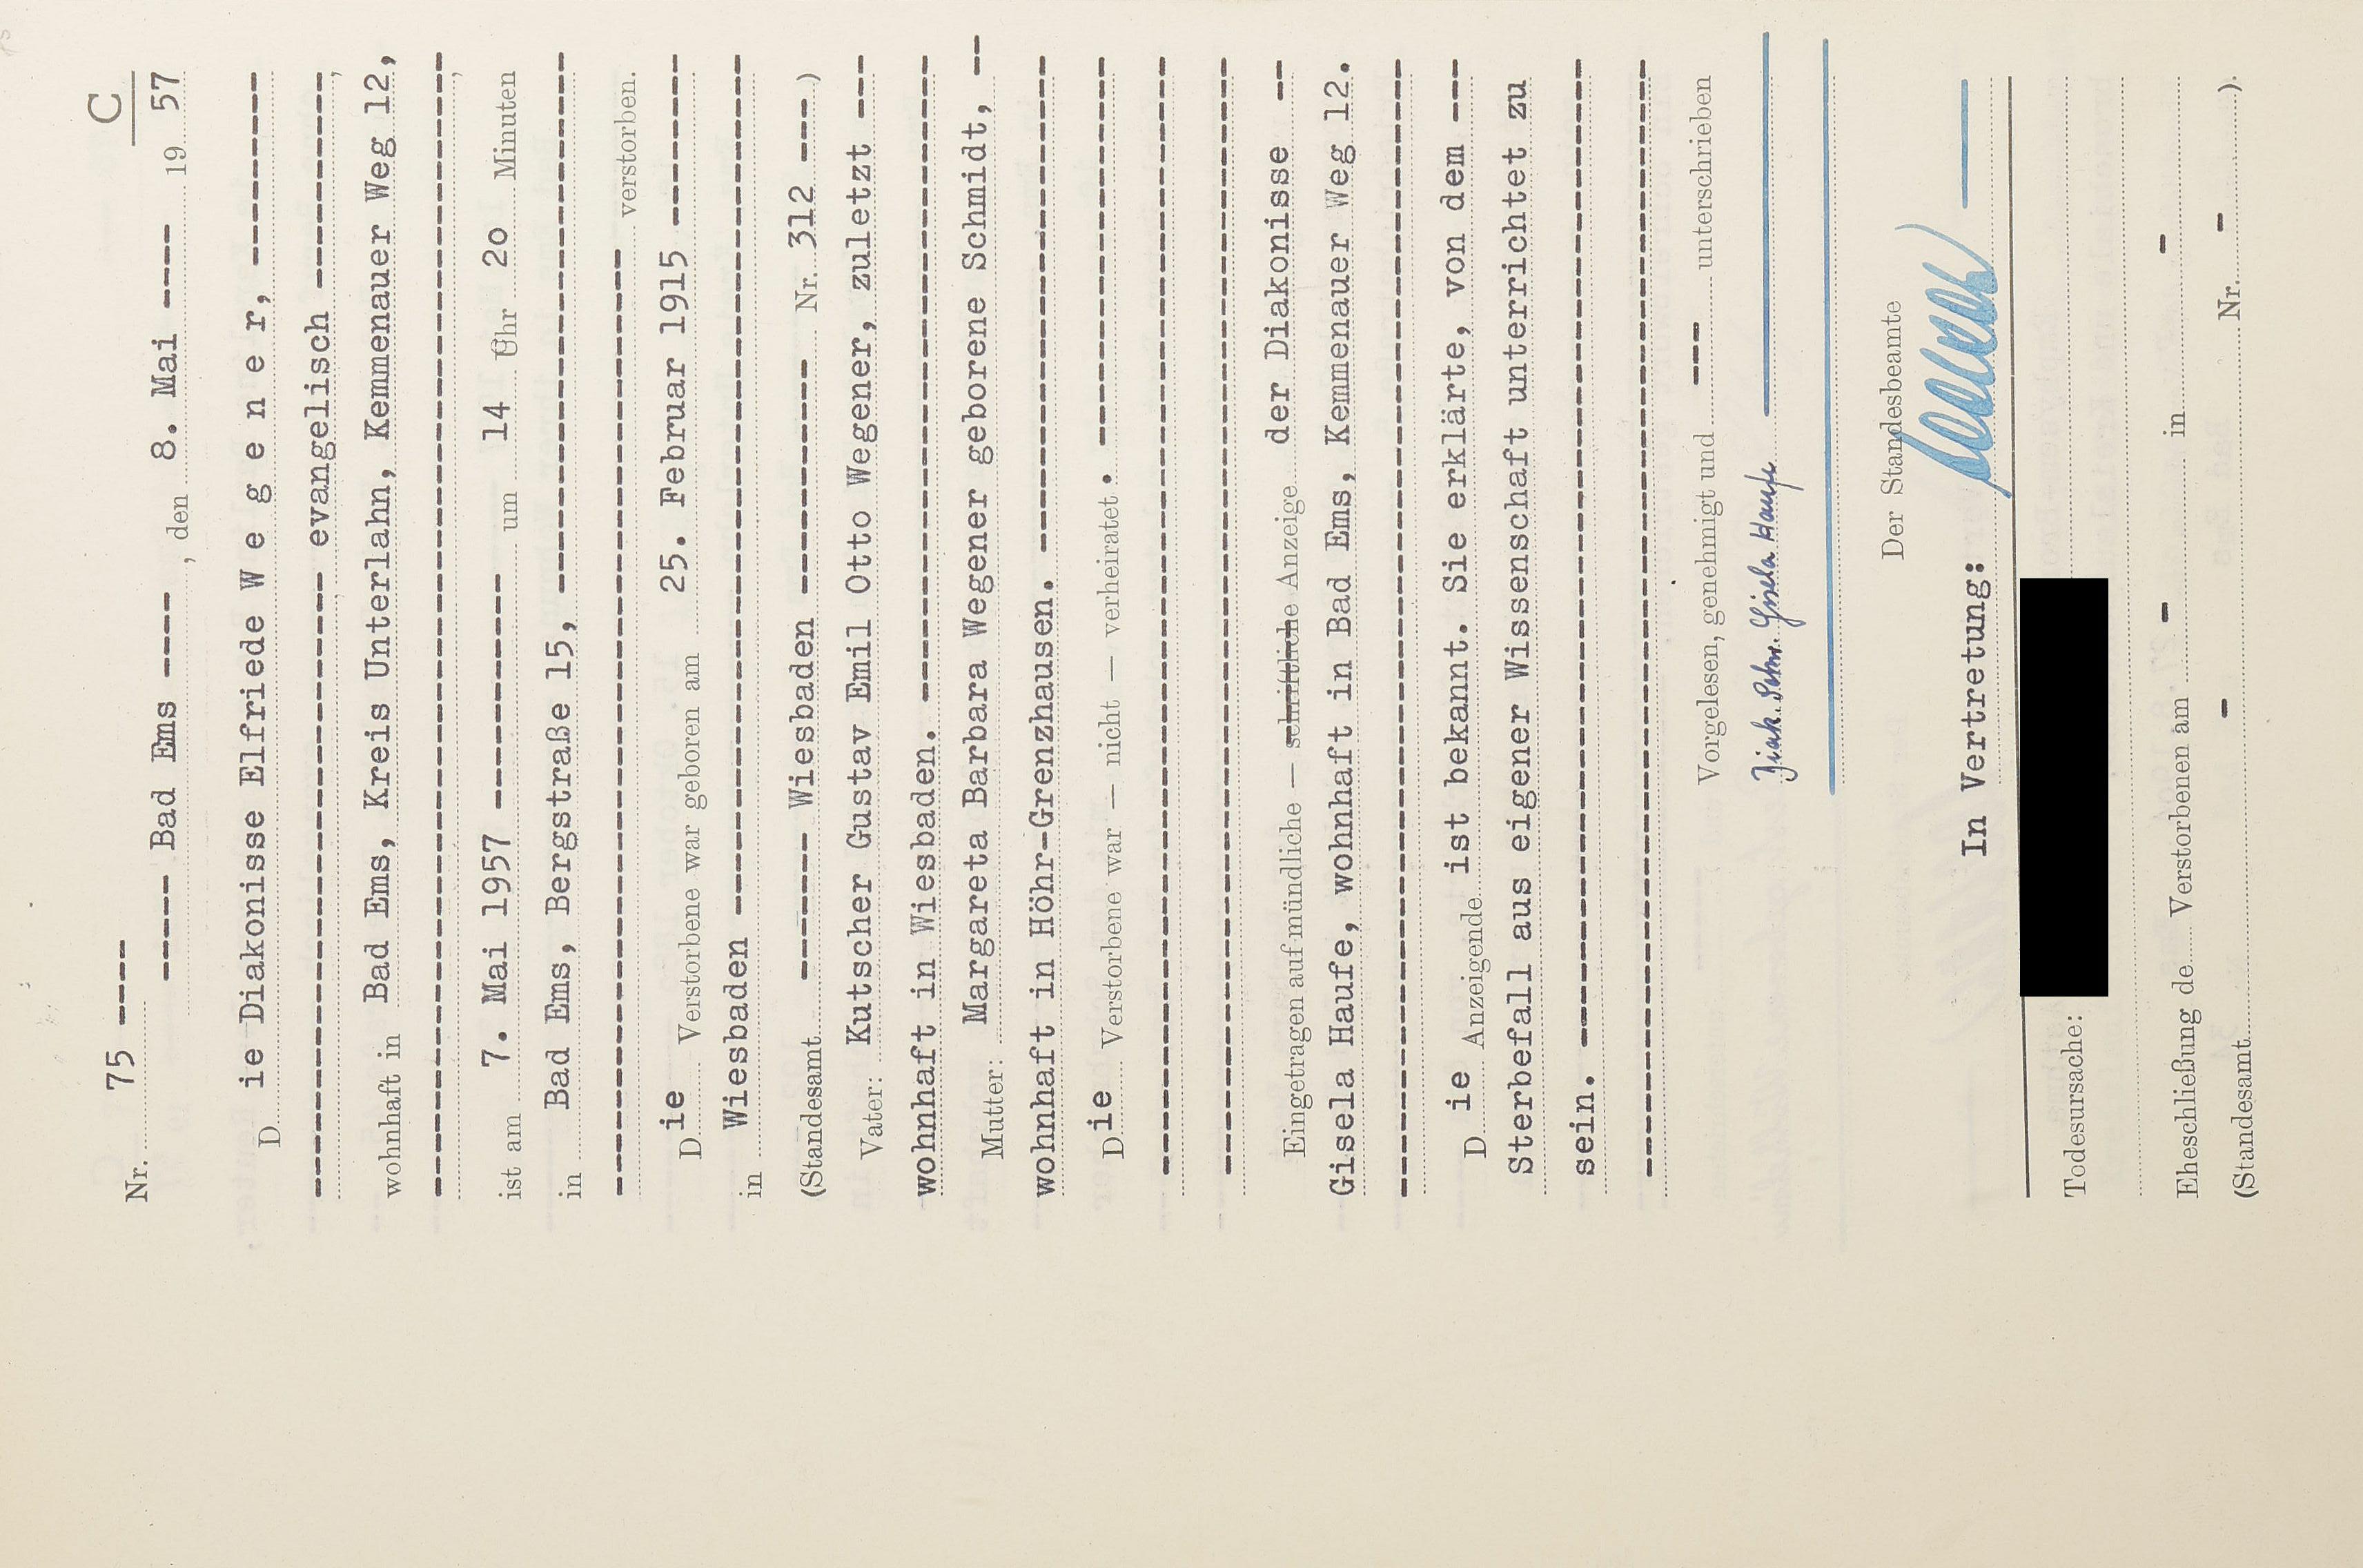 C
Nr. 75 ----
----- Bad Ems ----, den 8. Mai ---- 19 57
Die Diakonisse Elfriede W e g e n e r, ---------
---------------- evangelisch ----------,
wohnhaft in Bad Ems, Kreis Unterlahn, Kemmenauer Weg 12,
------------------------------------------------,
ist am 7. Mai 1957 ---------- um 14 Uhr 2o Minuten
in Bad Ems, Bergstraße 15, -----------------------
---------------------------------------- verstorben.
Die Verstorbene war geboren am 25. Februar 1915 --------
in Wiesbaden ------------------------------------
(Standesamt ------ Wiesbaden ---------- Nr. 312 ---.)
Vater: Kutscher Gustav Emil Otto Wegener, zuletzt ---
wohnhaft in Wiesbaden. ---------------------------
Mutter: Margareta Barbara Wegener geborene Schmidt, --
wohnhaft in Höhr-Grenzhausen. ---------------------
Die Verstorbene war — nicht — verheiratet. -----------------
------------------------------------------------
------------------------------------------------
Eingetragen auf mündliche — schriftliche Anzeige der Diakonisse --
Gisela Haufe, wohnhaft in Bad Ems, Kemmenauer Weg 12.
------------------------------------------------
Die Anzeigende ist bekannt. Sie erklärte, von dem ---
Sterbefall aus eigener Wissenschaft unterrichtet zu
sein. ------------------------------------------
------------------------------------------------
Vorgelesen, genehmigt und --- unterschrieben
Diak. Schw. Gisela Haufe
Der Standesbeamte
In Vertretung:
Todesursache:
Eheschließung de Verstorbenen am - in -
(Standesamt - Nr. - ).